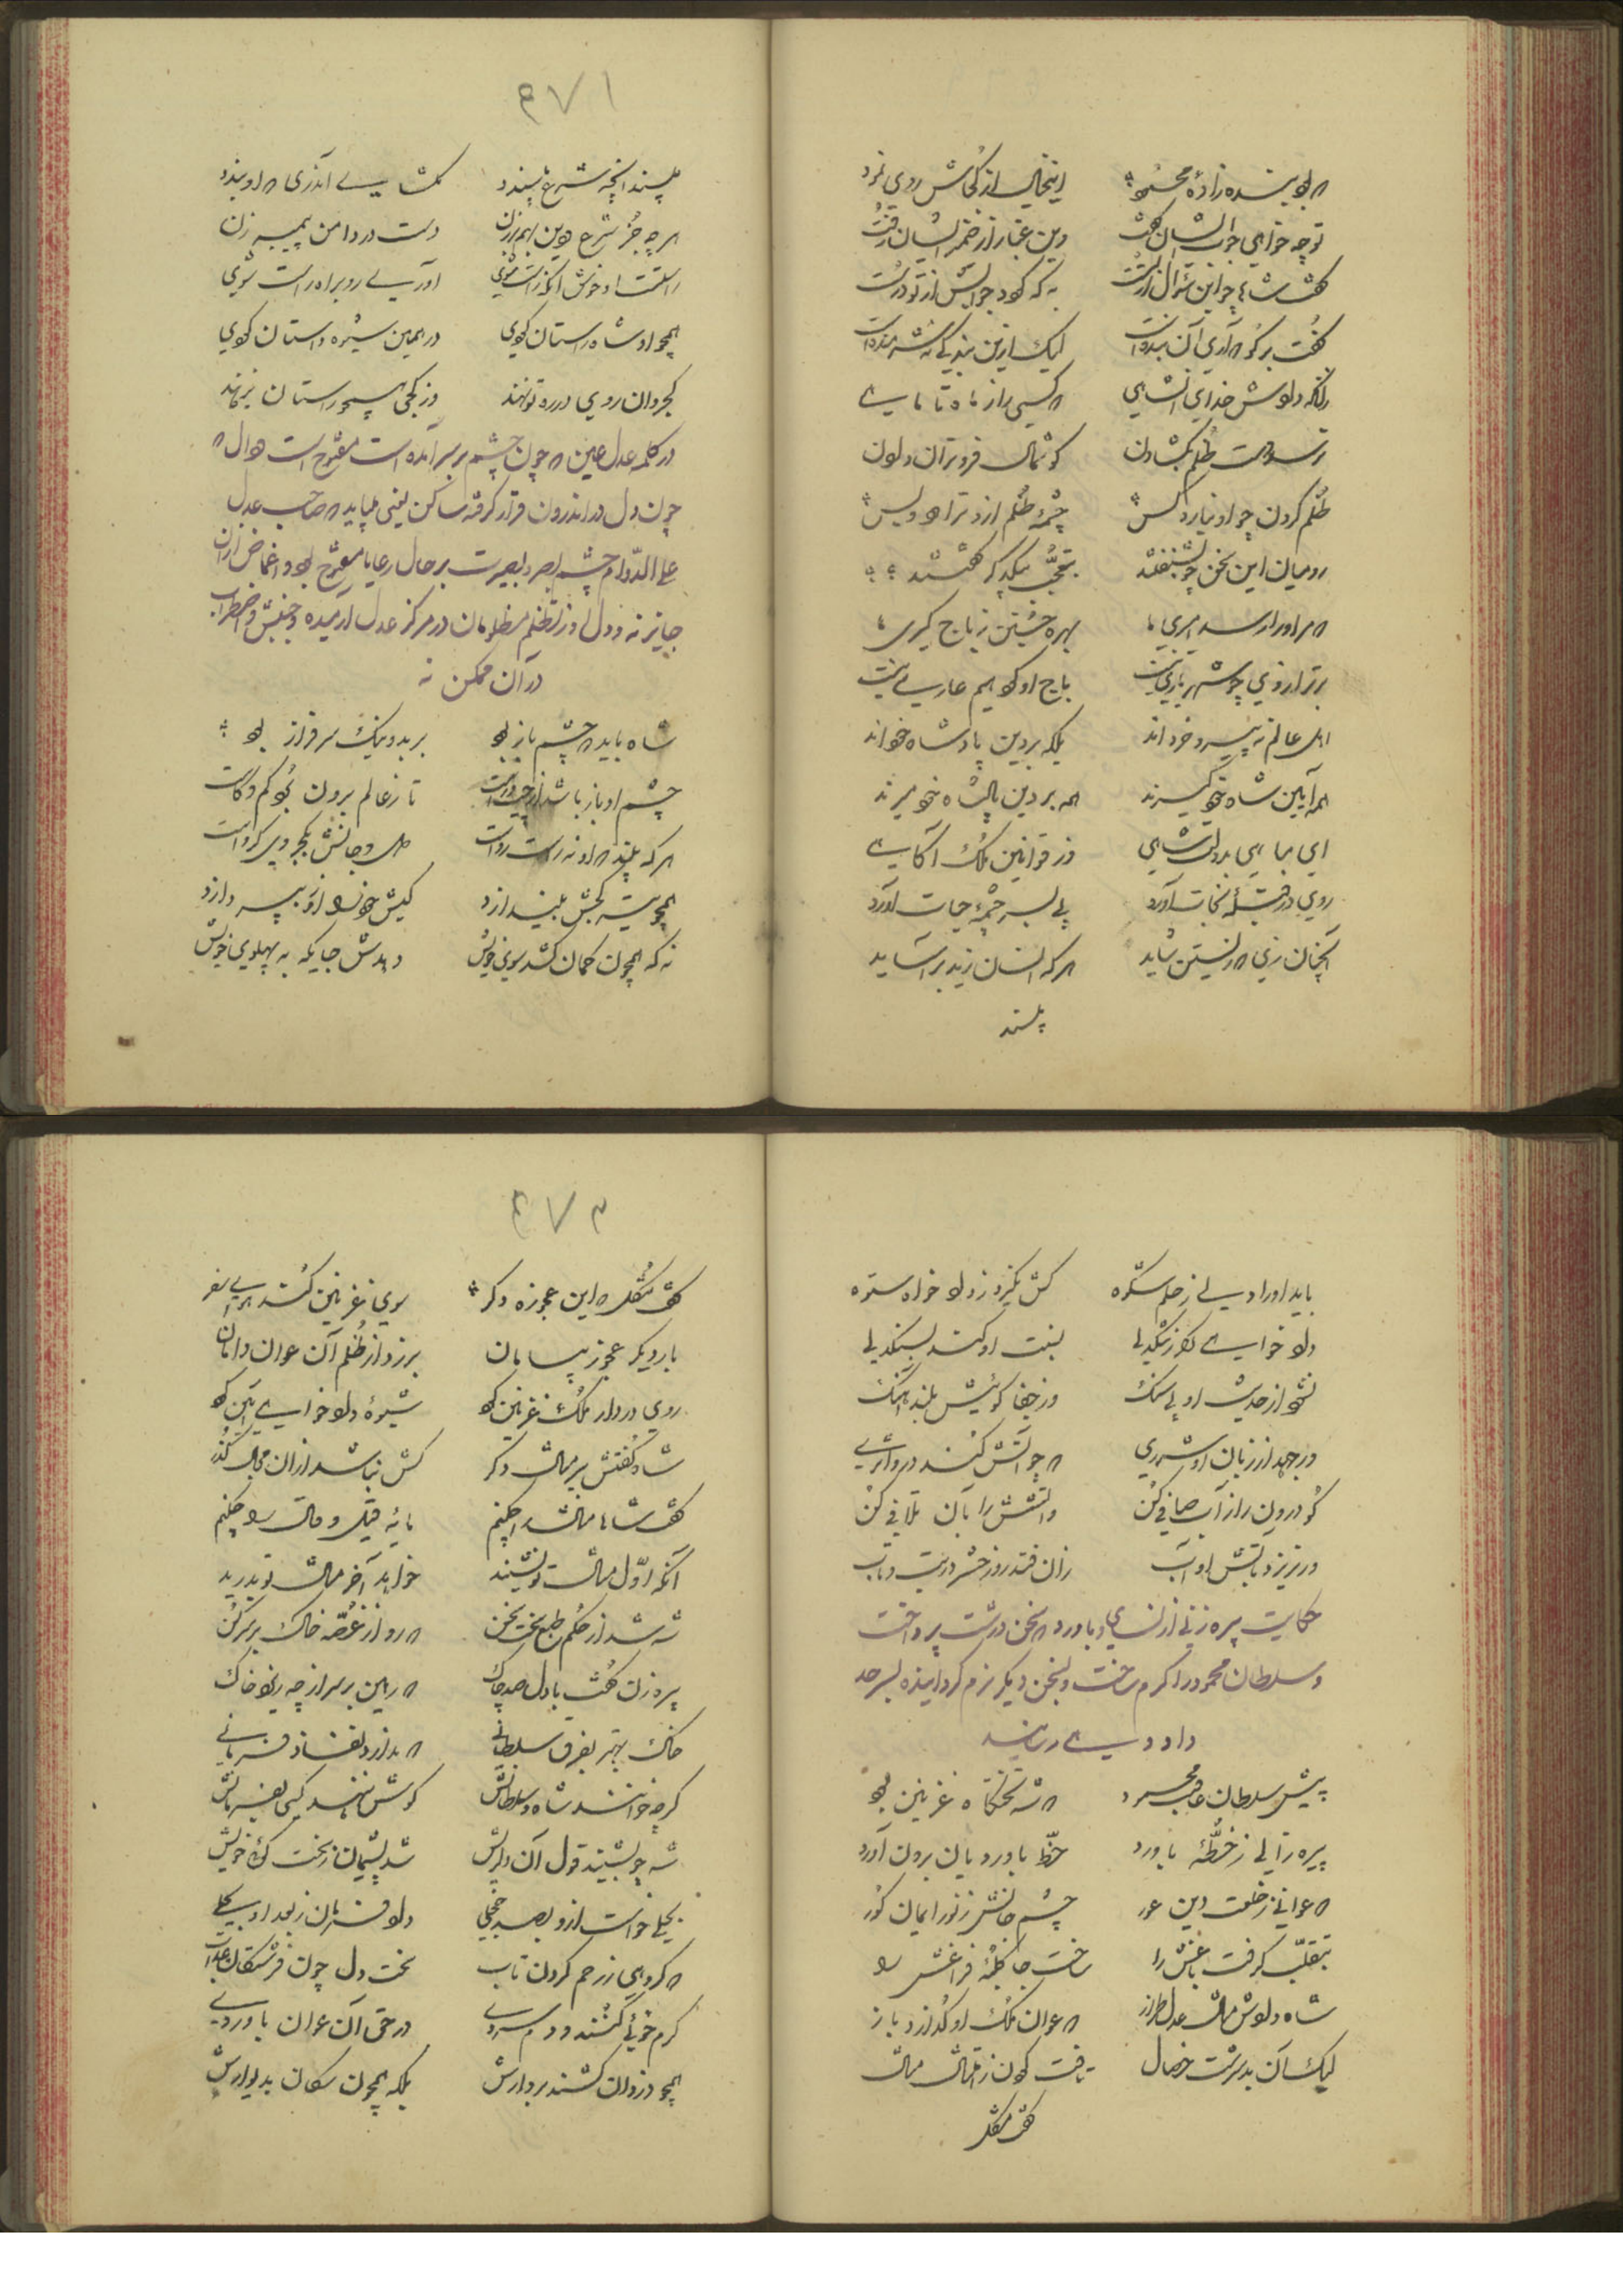 که بود بنده زادهٔ محمود    اینخیال از کجاش روی نمود
تو چه خواهی جواب ایشان گفت    وین غبار از ضمیر ایشان رفت
گفت شاها چو این سؤال از تست    به که گوید جوابش از تو درست
گفت برگو که آری آن بنده است    لیک ازین بندگی نه شرمنده است
زانکه دادش خدای آن شاهی    که کسی را ز ماه تا ماهی
نرسد دست ظلم بگشادن    گوشمال فروتران دادن
ظلم کردن چو او نیارد کس    چشمهٔ ظلم ازو تراود و بس
رومیان این سخن چو بشنفتند    بتعجب بیکدگر گفتند
که مر او را رسد امیری ما    بهره جستن ز باج گیری ما
برتر از وی چو شهریاری نیست    باج او گر دهیم عاری نیست
اهل عالم نه پیرو خردند    بلکه بر دین پادشاه خودند
همه آیین شاه خود گیرند    همه بر دین پادشاه خود میرند
ای مباهی بدولت شاهی    وز قوانین ملک آگاهی
روی در قبلهٔ نجات آور    پی بسرچشمهٔ حیات آور
آنچنان زی که زیستن شاید    هر که انسان زید بر آساید
پسند
۴۷۱
پسند آنچه شرع نپسندد    مگشا بیی آن دری که او بندد
هر چه جز شرع و دین بهم برزن    دست در دامن پیمبر زن
راستست او خوش آنکه راست شوی    آوری رو براه راست شوی
همچو او شاه راستان گوی    در همین شیوه داستان گوی
کجروان روی در ره تو نهند    وز کجی همچو راستان برهند
در کلمه عدل عین که چون چشم بر سر آمده است مفتوح است و دال که
چون دل در اندرون قرار گرفته ساکن یعنی میباید که صاحب عدل
علی الدوام چشم بصر و بصیرت بر حال رعایا مفتوح بود و اغماض ازان
جایز نه و دل او از تظلم مظلومان در مرکز عدل آرمیده و جنبش و اضطراب
در آن ممکن نه
شاه باید که چشم باز بود    بر بد و نیک سرفراز بود
چشم او باز باشد از چپ و راست    تا ز عالم برون بود کم و کاست
هر که بیند که او نه راست رواست    میل و جانش بکج روی گرو است
همچو تیر کجش بیندازد    کیش خود را ازو بپردازد
نه که همچون کمان کشد سوی خویش    دهدش جایگه به پهلوی خویش
باید او را دلی ز حلم ستوه    کش نگیرد ز داد خواه ستوه
داد خواهی کز تنگدلی    بنیت او کند بسنگدلی
نشود از حدیث او بی سنگ    وز جفا گوئیش بلند آهنگ
ور جهد از زبان او شرری    که چو آتش کند درو اثری
گو درون را ز آب صافی کن    و آتشش را بآن تلافی کن
ور نریزد بآتش او آب    زان فتد روز حشر در تب و تاب
حکایت پیره زنی از نسا و باورد که سخن درشت پرداخت
و سلطان محمود را گرم ساخت و بسخن دیگر نرم گردانیده بسر حد
داد دهی رسانید
پیش سلطان عاقبت محمود    که شه تختگاه غزنین بود
پیره زالی ز خطهٔ باورد    خط باوردیان برون آورد
که عوانی ز خلعت دین عور    چشم جانش ز نور ایمان کور
بتغلب گرفت باغش را    ساخت جا کلبهٔ فراغش را
شاه دادش مثال عدل طراز    که عوان ملک او گذارد باز
لیک آن بد سرشت خصال    تافت گردن ز امتثال مثال
گفت مشکل
۴۷۲
گفت مشکل که این عجوزه دگر    سوی غزنین کشد بلای سفر
بار دیگر عجوز بی سامان    بر زد از ظلم آن عوان دامان
روی در دار ملک غزنین کرد    شیوهٔ داد خواهی آیین کرد
شاه گفتش ببر مثال دگر    کش نباشد ازان مجال گذر
گفت شاها مثال را چکنم    مایهٔ قیل و قال را چکنم
آنکه اول مثال تو نشنید    خواهد آخر مثال تو بدرید
شه شد از حکم طبع سخت سخن    که رو از غصه خاک بر سر کن
پیره زن گفت با دل صد چاک    که من بر سر از چه ریزم خاک
خاک بهتر بفرق سلطانی    که ندارد نفاذ فرمانی
گر چه خوانند شاه و سلطانش    گوش ننهد کسی بفرمانش
شه چو بشنید قول آن دلریش    شد پشیمان ز سخت گوئی خویش
بحلی خواست ازو بصد خجلی    داد فرمان ز بعد آن بحلی
که گروهی ز رحم گردون تاب    سخت دل چون فرشتگان عذاب
گرم خوئی کنند و دم سردی    در حق آن عوان باوردی
همچو دزدان کشند بر دارش    بلکه همچون سگان بدیوارش